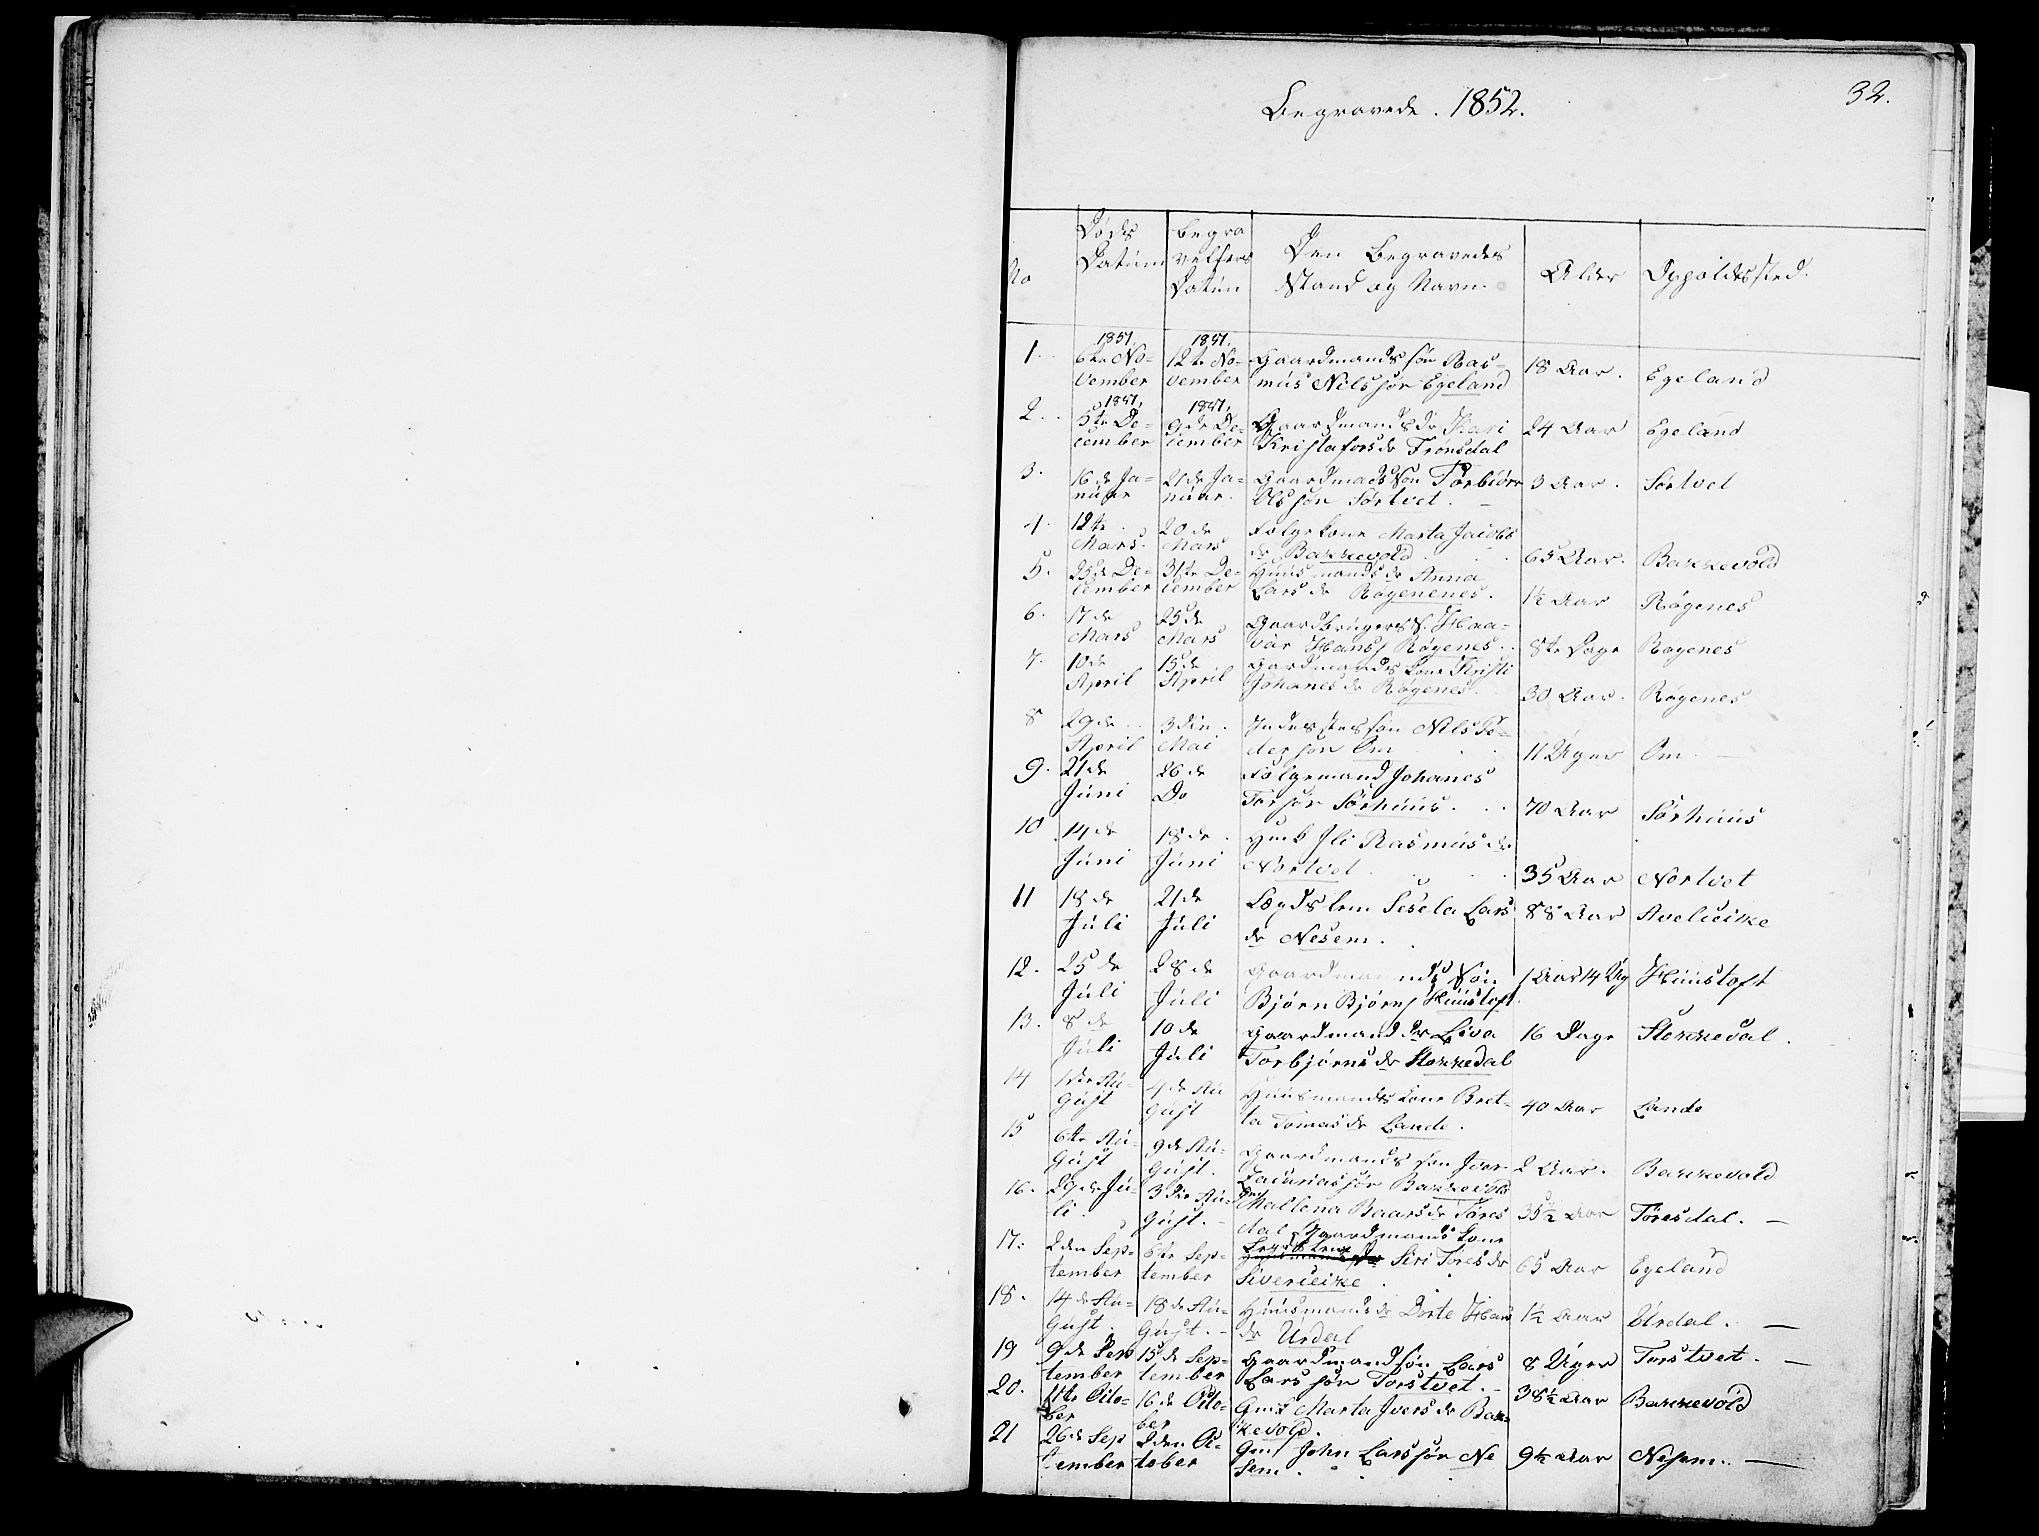 Begravede. 1852.
32.
No
Døds Datum
begravelses Datum
Den Begravedes Stand og Navn.
Alder
Oppoldssted.
1. 1851. 6te November 1851. 12te November Gaardmands søn Rasmus Nilssøn Egeland 18 Aar. Egeland
2. 1851. 5te December 1851. 9de December Gaardmands dr Kari Kristafersdr Frønsdal 24 Aar Egeland
3. 16de Januar 21de Januar. Gaardmads søn Torbiørn Olssøn Sørtvet. 3 Aar. Sørtvet
4. 12te Mars. 20de Mars Følgekone Marta Jacobsdr Bakkevold 65 Aar. Bakkevold
5. 25de December 31te December Huusmandsdr Anna Larsdr Røgenenes. 1½ Aar Røgenes
6. 17de Mars 25de Mars Gaardbrugers s. Haavar Hanss Røgenes.. 8te Dage Røgenes
7. 10de April 15de April Gardmands kone Kristi Johanesdr Røgenes. 30 Aar. Røgenes
8 29de April 3die Mai Inderstes søn Nils Pedersøn Om 11 Uger Om. —
9. 21de Juni 26de Do Følgemand Johanes Torsøn Sørhuus. 70 Aar Sørhuus
10 14de Juni 18de Juni Hmk Ili Rasmusdr Nortvet 35 Aar Nortvet
11 18de Juli 21de Juli Lægdslem Sesela Larsdr Nesem. 88 Aar Aveleike
12. 25de Juli 28de Juli Gaardmannds søn Bjørn Bjørns Huustoft. 1 Aar 14 Ug Huustoft
13. 8de Juli 10de Juli Gaardmand dr Liva Torbjørnsdr Stokkedal 16 Dage Stokkedal.
14 1ste August 4de August Huusmands kone Bretta Tomasdr Lande. 40 Aar Lande
15 6te August 9de August. Gaardmands søn Iver Zacariassøn Bakkevold 2 Aar. Bakkevold
16. 29de Juli. 3die August. – Mallena Baarsdr Tøresdal Gaardmands kone 35½ Aar Tøresdal. —
17: 2den September 6te September Lægdslem Siri Toresdr Sivercike 65 Aar Egeland
18. 14de August. 18de August. – Huusmandsdr Dorte Hansdr Urdal 1½ Aar Urdal. —
19 9de September 15de September Gaardmandsøn Lars Larssøn Torstvet. – 8 Uger Torstvet. —
20. 11te October 16de October Gmk Marta Iversdr Bakkevold. 38½ Aar Bakkevold
21 26de September 2den October Gms John Larssøn Nesem. 9½ Aar Nesem. —